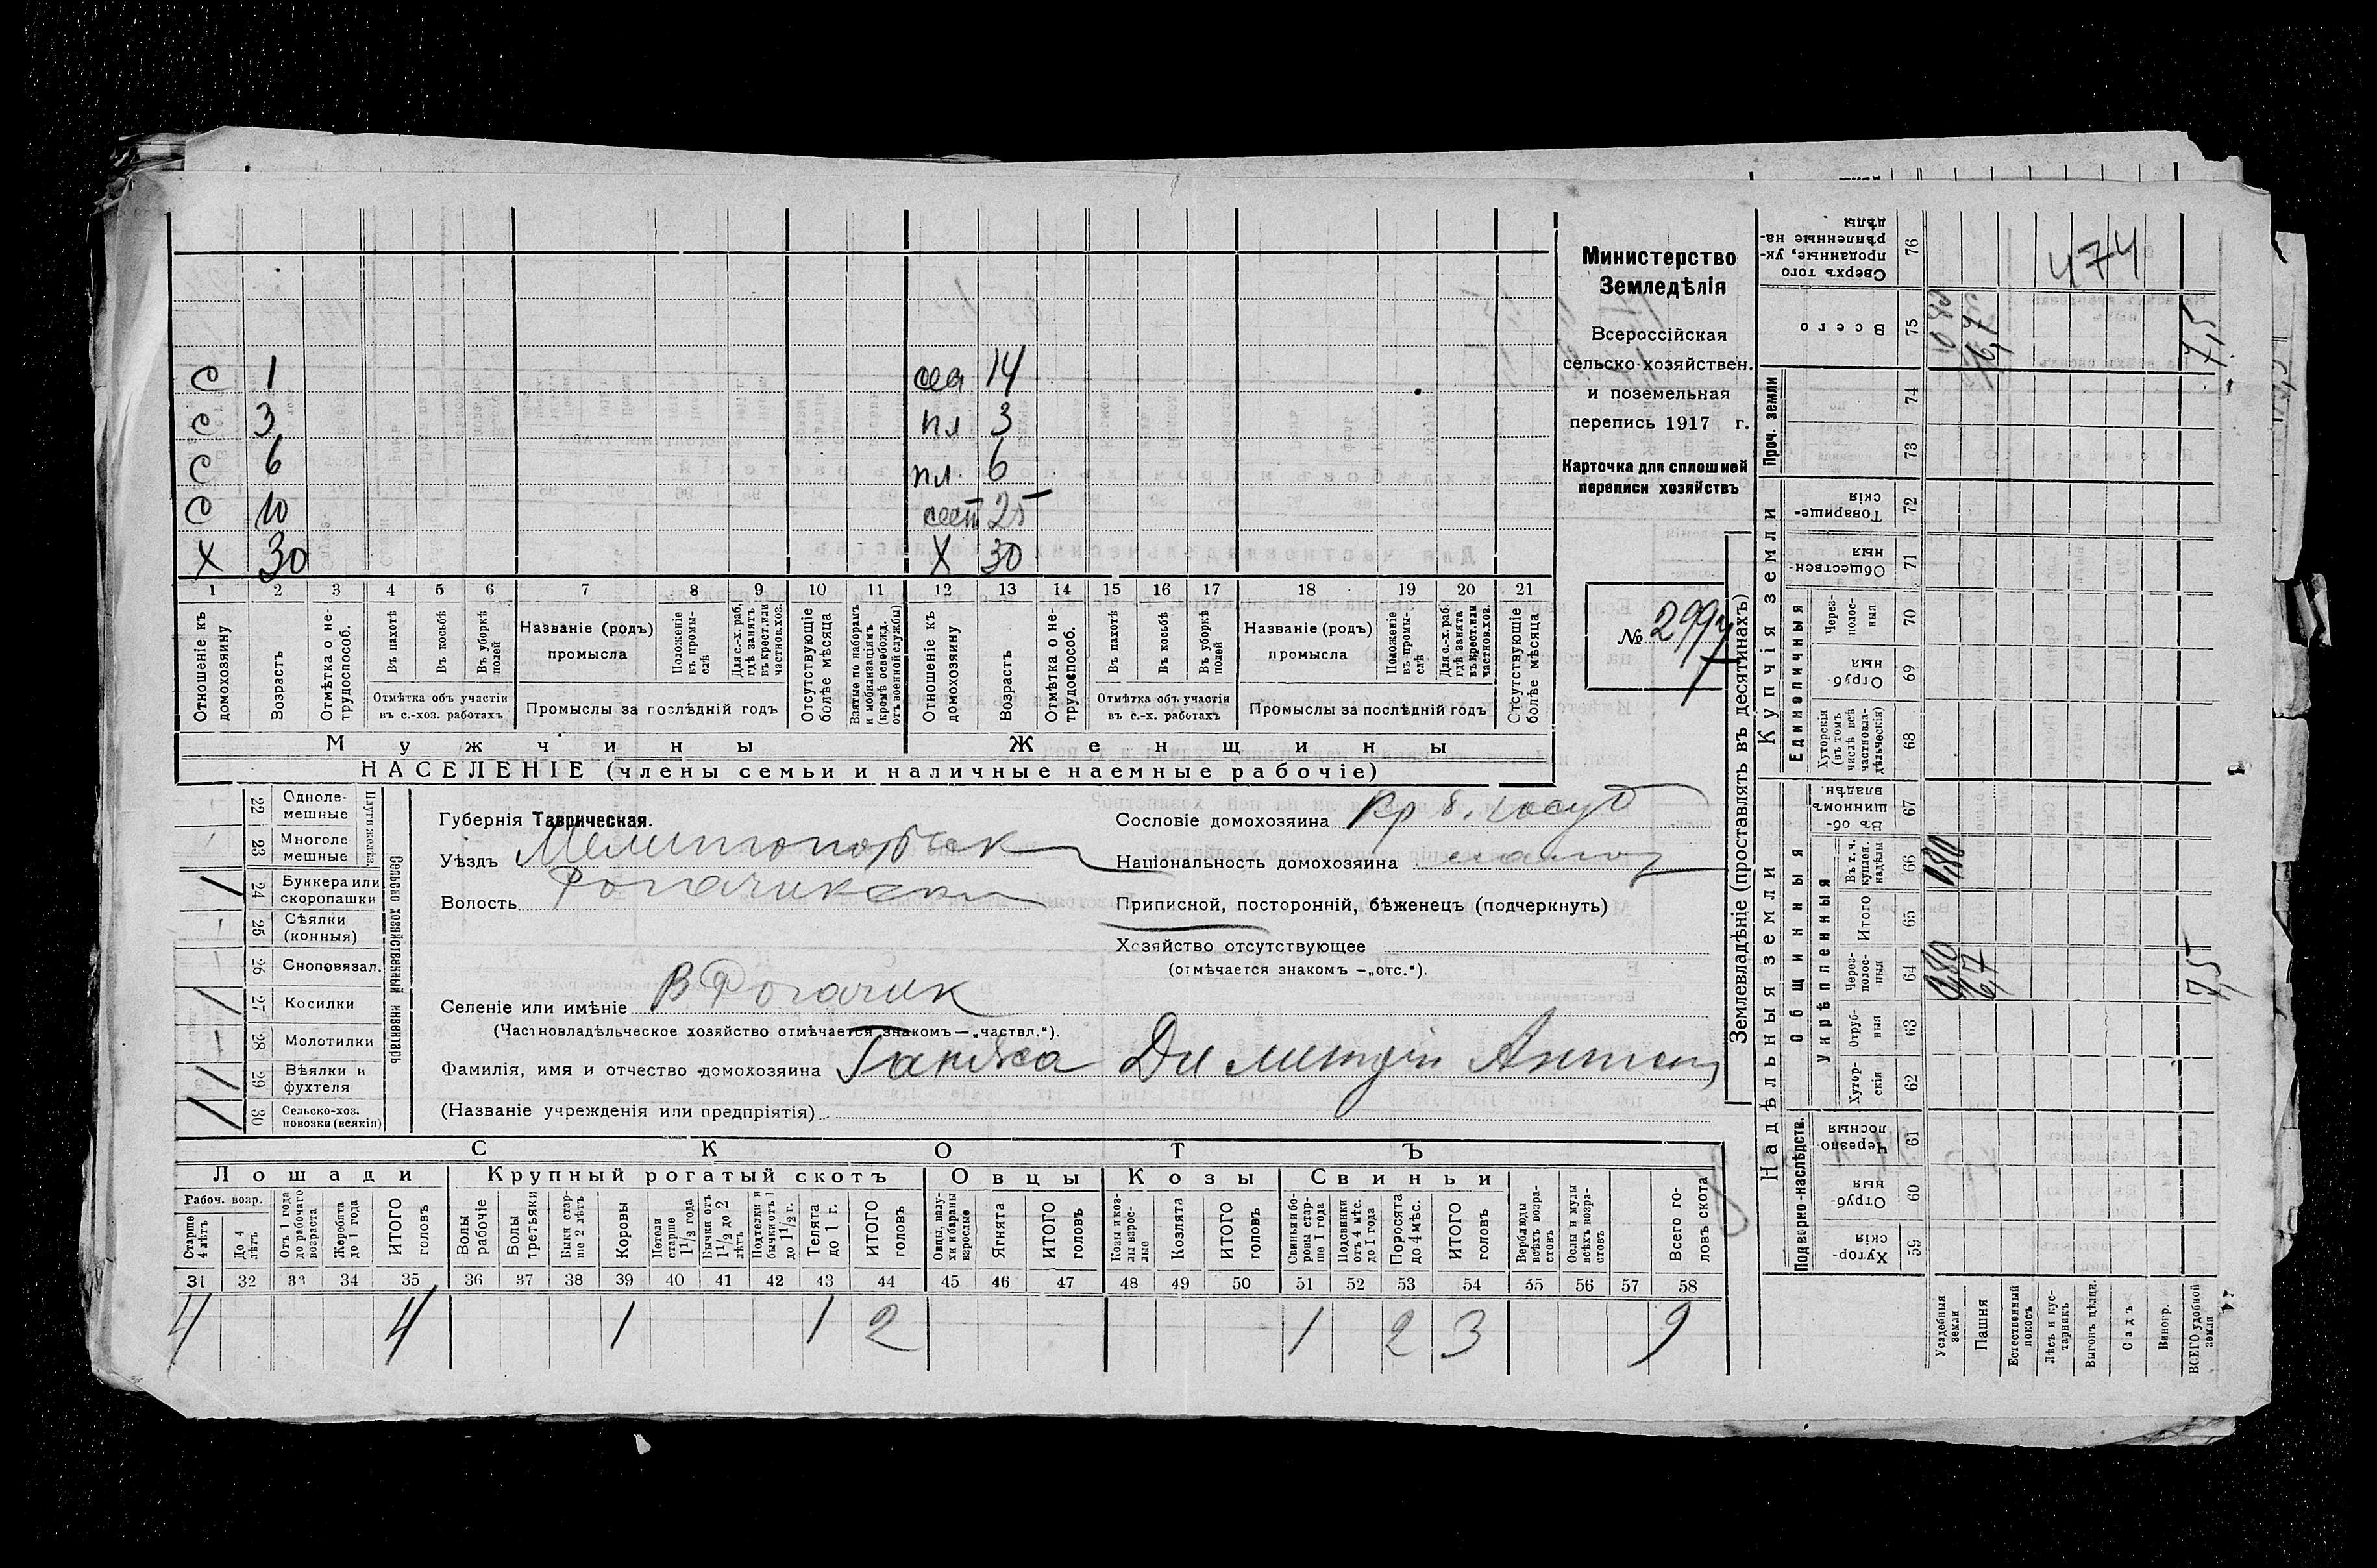 474
С 1 сес 14
С 3 пл 3
С 6 пл. 6
С 10 сест 25
Х 30 Х 30
1 2 3 4 5 6 7 8 9 10 11 12 13 14 15 16 17 18 19 20 21
Отношеніе къ домохозяину
Возрастъ
Отмѣтка о не-трудоспособ.
Въ пахотѣ
Въ косьбѣ
Въ уборкѣ полей
Отмѣтка объ участіи въ с.-хоз. работахъ
Названіе (родъ) промысла
Положеніе въ промы-слѣ
Для с.-х. раб. гдѣ занятъ въ крест. или частнов. хоз.
Промыслы за послѣдній годъ
Отсутствующіе болѣе мѣсяца
Взятые по наборамъ и мобилизаціямъ (кромѣ освобожд. отъ военной службы)
Отношеніе къ домохозяину
Возрастъ
Отмѣтка о не-трудоспособ.
Въ пахотѣ
Въ косьбѣ
Въ уборкѣ полей
Отмѣтка объ участіи въ с.-х. работахъ
Названіе (родъ) промысла
Положеніе въ промы-слѣ
Для с.-х. раб. гдѣ занята въ крест. или частнов. хоз.
Промыслы за послѣдній годъ
Отсутствующіе болѣе мѣсяца
Мужчины Женщины
НАСЕЛЕНІЕ (члены семьи и наличные наемные рабочіе)
Министерство
Земледѣлія
Всероссійская
сельско-хозяйствен.
и поземельная
перепись 1917 г.
Карточка для сплошней
переписи хозяйствъ
№ 299
22 Одноле-мешные
23 Многоле мешные
24 Буккера или скоропашки
25 Сѣялки (конныя)
26 Сноповязал.
27 Косилки
28 Молотилки
29 Вѣялки и фухтеля
30 Сельско-хоз. повозки (всякія)
Сельско хозяйственный инвентарь
Губернія Таврическая.
Уѣздъ Мелитопольск
Волость Рогачикск
Селеніе или имѣніе В Рогачик
(Частновладѣльческое хозяйство отмѣчается знакомъ—„частвл.“).
Фамилія, имя и отчество домохозяина Димитрій Антон
(Названіе учрежденія или предпріятія)
Сословіе домохозяина кр б. госуд
Національность домохозяина малор
Приписной, посторонній, бѣженецъ (подчеркнуть)
Хозяйство отсутствующее
(отмѣчается знакомъ —„отс.“).
СКОТЪ
Лошади Крупный рогатый скотъ Овцы Козы Свиньи
Рабоч. возр.
Старше 4 лѣтъ
До 4 лѣтъ
Отъ 1 года до рабочаго возраста
Жеребята до 1 года
ИТОГО головъ
Волы рабочіе
Волы третьяки
Быки стар-ше 2 лѣтъ
Коровы
Нетели старше 1 1/2 года
Бычки отъ 1 1/2 до 2 лѣтъ
Подтелки и бычки отъ 1 до 1 1/2 г.
Телята до 1 г.
ИТОГО головъ
Овцы, валу-хи и бараны взрослые
Ягнята
ИТОГО головъ
Козы и коз-лы взрос-лые
Козлята
ИТОГО головъ
Свиньи и бо-ровы стар-ше 1 года
Подсвинки отъ 4 мѣс. до 1 года
Поросята до 4 мѣс.
ИТОГО головъ
Верблюды всѣхъ возра-стовъ
Ослы и мулы всѣхъ возра-стовъ
Всего го-ловъ скота
31 32 33 34 35 36 37 38 39 40 41 42 43 44 45 46 47 48 49 50 51 52 53 54 55 56 57 58
4 4 1 1 2 1 2 3 9
Землевладѣніе (проставлять въ десятинахъ)
Надѣльныя земли Купчія земли Проч. земли
Подворно-наслѣдств. Общинныя Единоличныя
Укрѣпленныя
76 Сверхъ того проданные, ук-рѣпленные на-дѣлы
75 Всего 16,7 7,5
74
73
72 Товарище-скія
71 Обществен-ныя
70 Через-полос-ныя
69 Отруб-ныя
68 Хуторскія (въ томъ числѣ всѣ частновла-дѣльческія)
67 Въ об-щинномъ владѣн.
66 Въ т. ч. куплен. надѣлы
65 Итого
64 Через-полос-ныя 0,80 6,7 7,5
63 Отруб-ныя
62 Хутор-скія
61 Черезпо-лосныя
60 Отруб-ныя
59 Хутор-скія
Усадебныя земли
Пашня
Естественный покосъ
Лѣсъ и кус-тарникъ
Выгонъ цѣлцн.
Садъ
Виногр.
ВСЕГО удобной земли